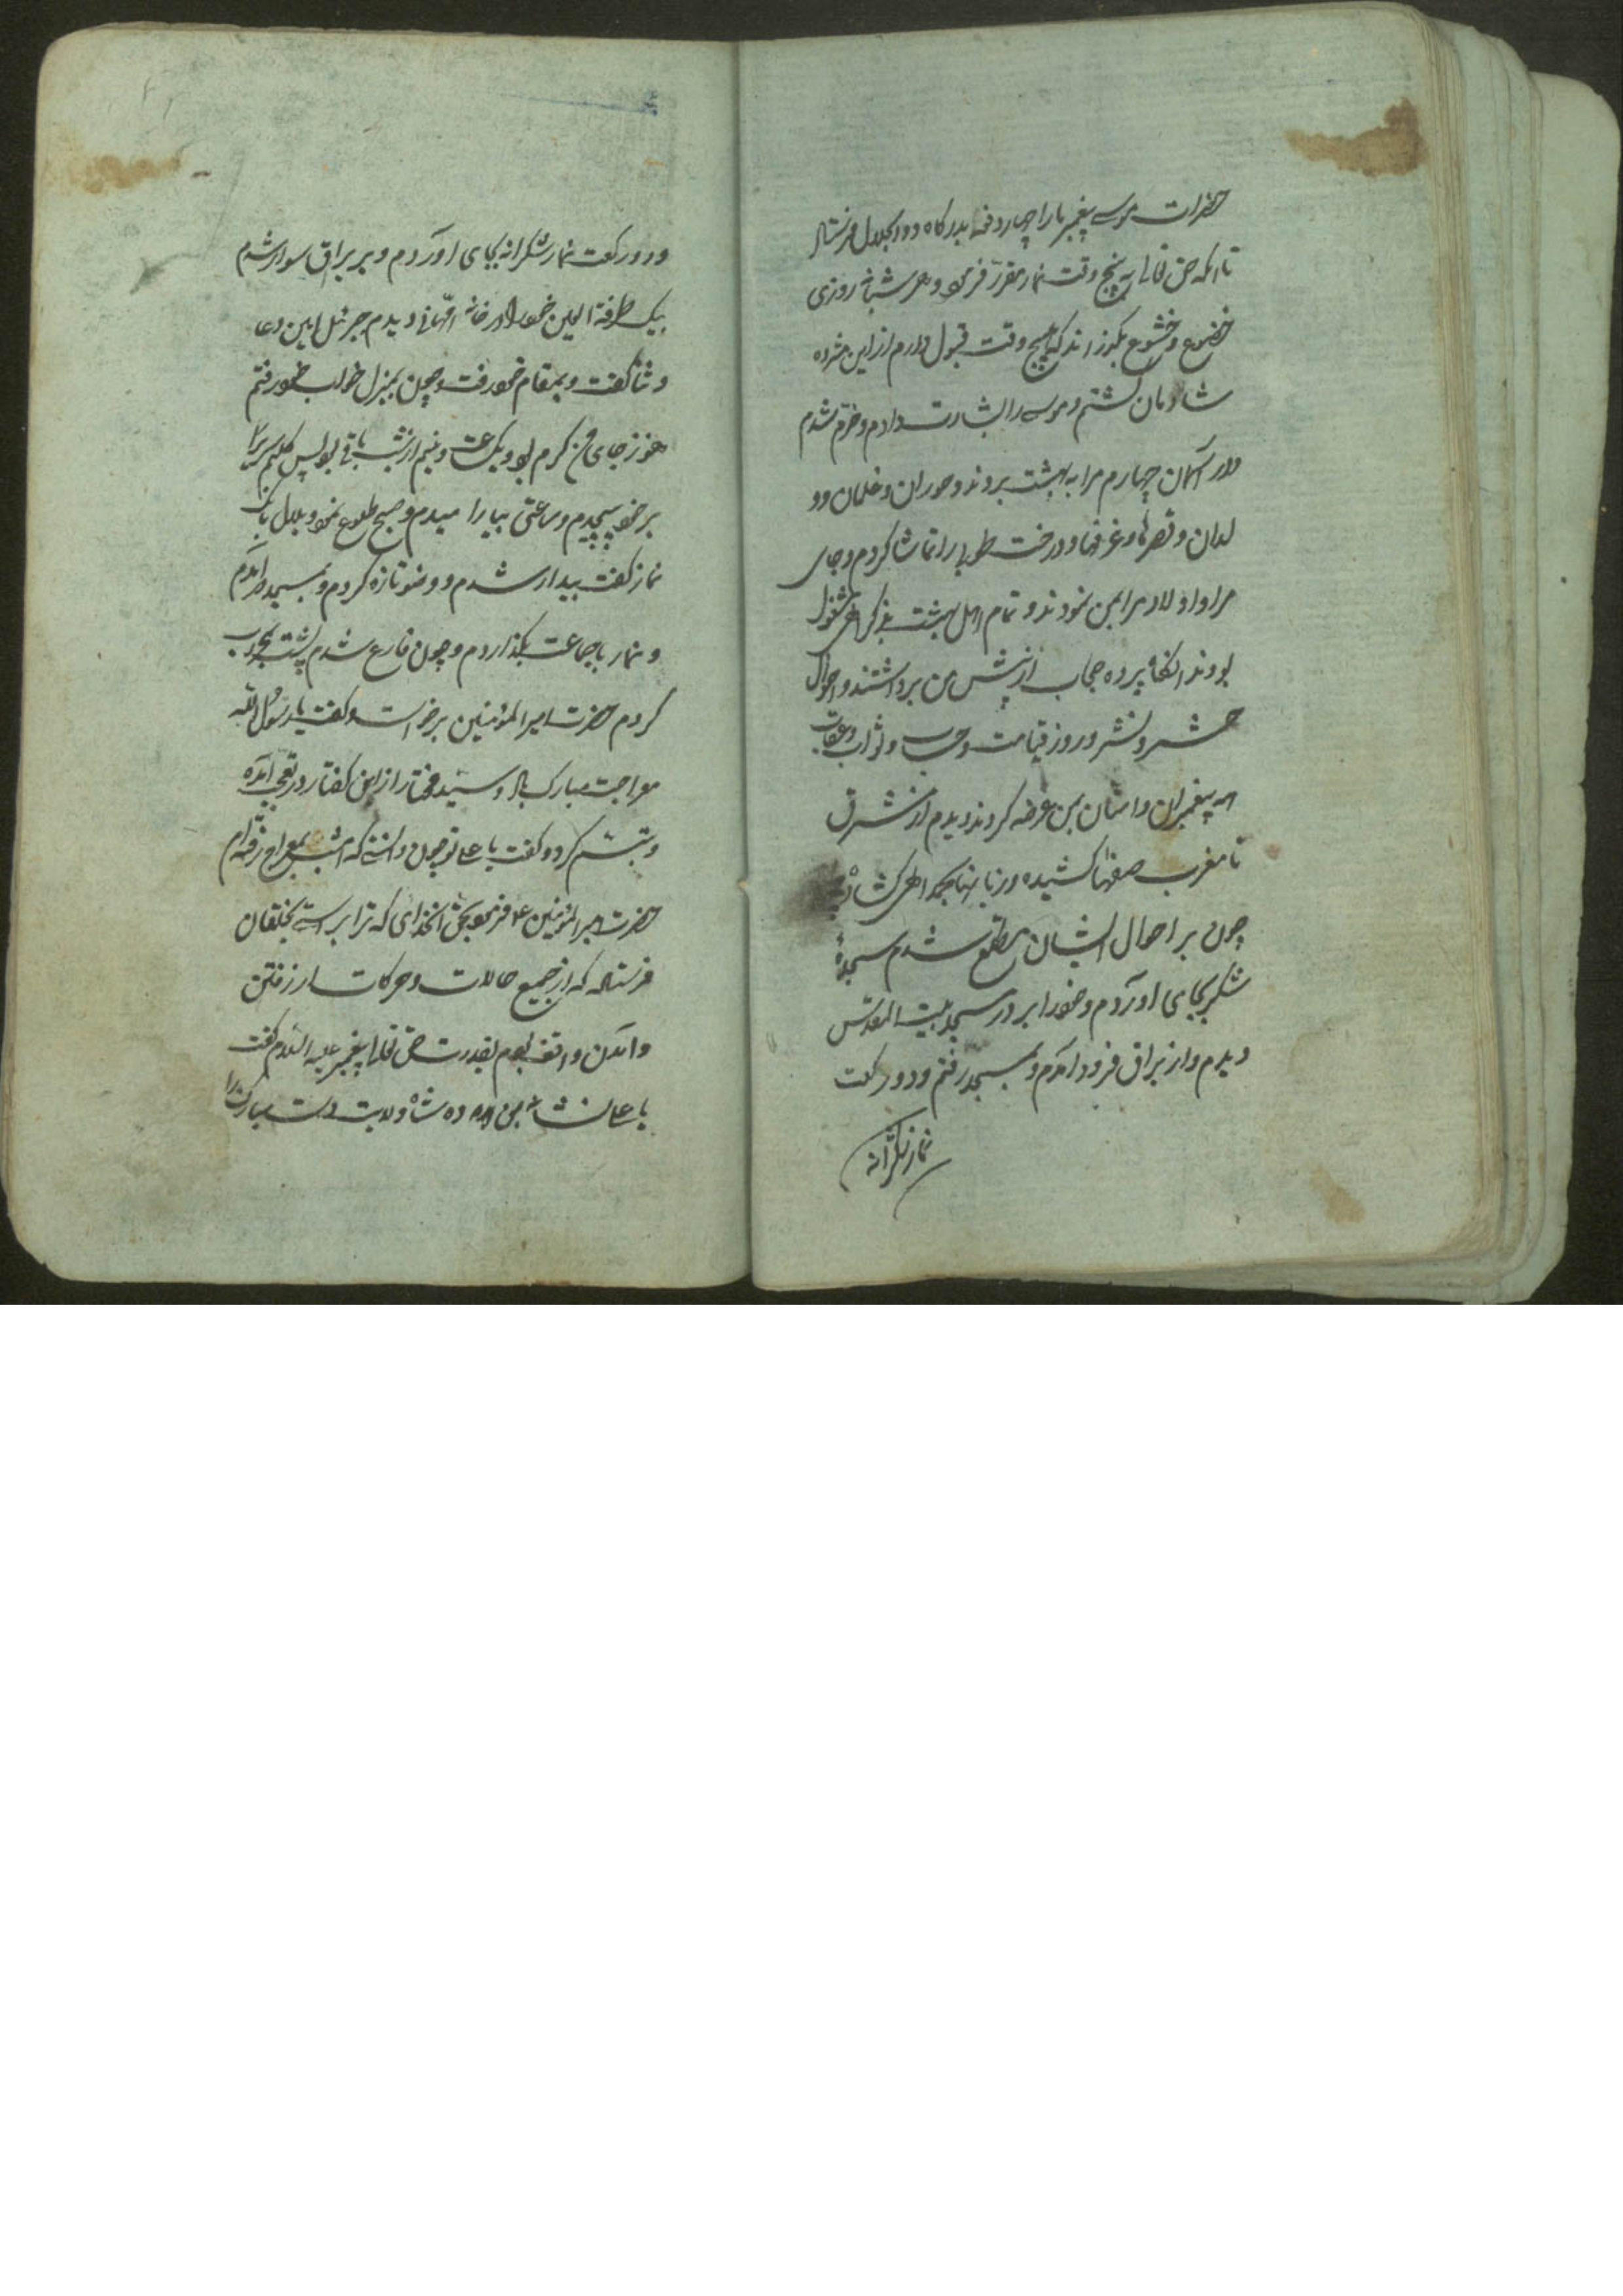 حضرات موسی پیغمبر ما را چهار دفعه بدرکاه ذوالجلال فرستاد
تا انکه حق تعالی به پنج وقت نماز مقرر فرمود و هر شبانه روزی
خضوع و خشوع بکذراند که پنج وقت قبول دارم از این مژده
شادمان کشتم و موسی را بشارت دادم و خرم شدم
در آسمان چهارم مرا به بهشت بردند و حوران و غلمان و و
لدان و قصرها و غرفها و درخت طوبا را تماشا کردم و جای
مرا و اولاد مرا بمن نمودند و تمام اهل بهشت بذکر الهی مشغول
بودند انکاه پرده حجاب از پیش من برداشتند و احوال
حشر و نشر و روز قیامت و حساب و ثواب و عقاب
همه پیغمبران و امتان بمن عرضه کردند دیدم از مشرق
تا مغرب صفها کشیده و زبانها بحمد الهی کشاده
چون بر احوال ایشان مطلع شدم سجدهٔ
شکر بجای اوردم و خود را بر در مسجد بیت المقدس
دیدم و از براق فرود امدم و بمسجد رفتم و دو رکعت
نماز شکرانه
و دو رکعت نماز شکرانه بجای اوردم و بر براق سوار شدم
بیک طرفة العین خود را در خانه امهانی دیدم جبرئیل امین دعا
و ثنا کفت و بمقام خود رفت و چون بمنزل خواب خود رفتم
هنوز جای من کرم بود و یکساعت و نیم از شب باقی بود پس کلیم سیاه
بر خود پیچیدم و ساعتی بیارامیدم و صبح طلوع نمود و بلال بانک
نماز کفت بیدار شدم و وضو تازه کردم و بمسجد درآمدم
و نماز باجماعت بکذاردم و چون فارغ شدم پشت بمحراب
کردم حضرت امیر المؤمنین برخواست و کفت یا رسول الله
معراجت مبارک باد و سید مختار از این کفتار در تعجب آمده
و تبسم کرد و کفت یا علی تو چون دانستی که امشب بمعراج رفته ام
حضرت امیر المؤمنین ع م فرمود بحق انخدای که ترا براستی بخلقان
فرستاد که از جمیع حالات و حرکات از رفتن
و امدن واقف بودم بقدرت حق تعالی پیغمبر علیه السلام کفت
یا علی نشانه بمن ده شاه ولایت دست مبارک را